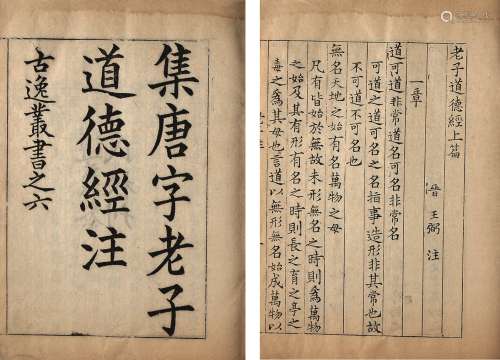 集唐字老子
道德經注
古逸叢書之六
老子道德經上篇
晉 王弼 注
一章
道可道非常道名可名非常名
可道之道可名之名指事造形非其常也故
不可道不可名也
無名天地之始有名萬物之母
凡有皆始於無故未形無名之時則爲萬物
之始及其有形有名之時則長之育之亭之
毒之爲其母也言道以無形無名始成萬物以